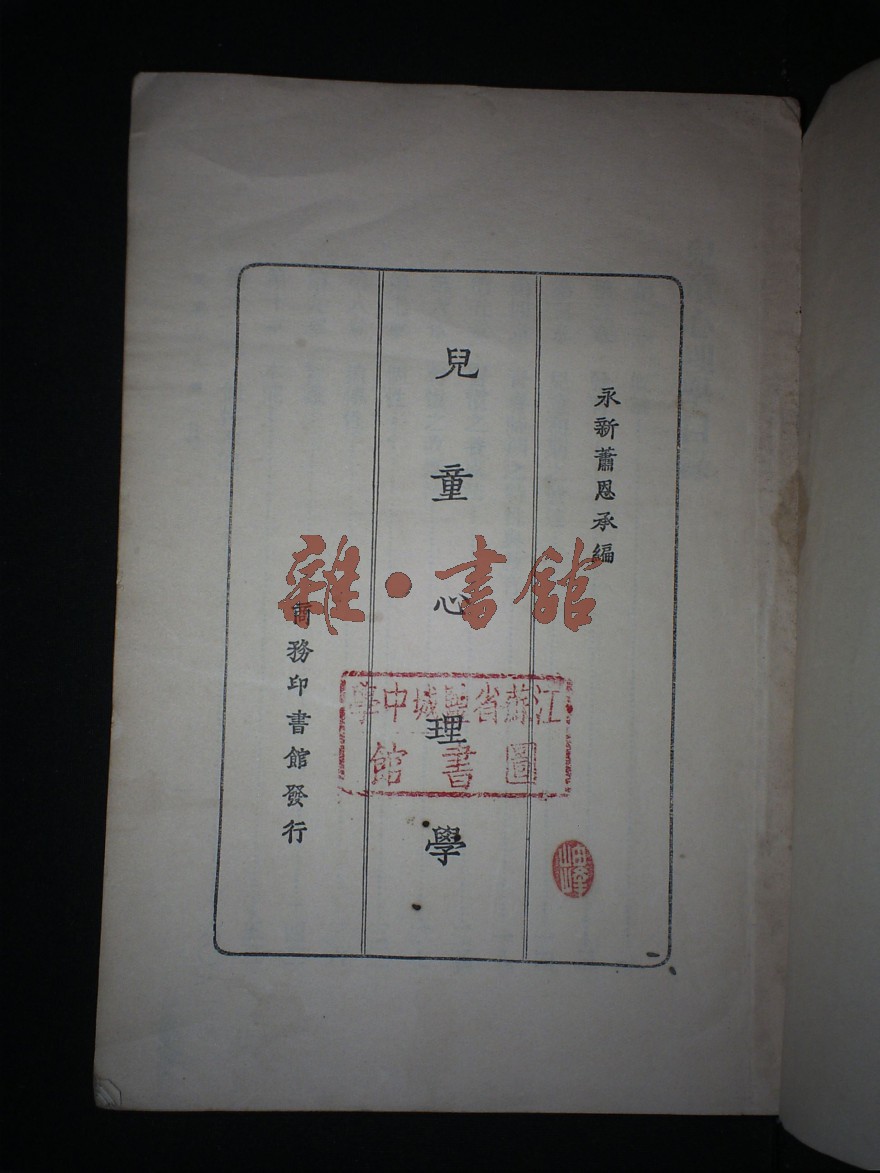 永新蕭恩承編
兒童心理學
商務印書館發行
雜·書館
江蘇省鹽城中學
圖書館
峰